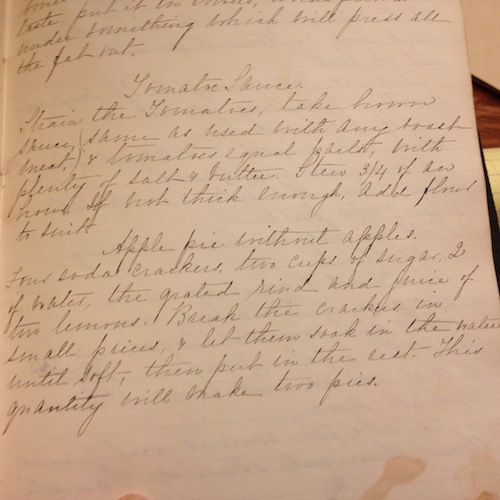 taste, put it in
under something which will press all
the fat out.
Tomatoe Sauce.
Strain the Tomatoes, take brown
sauce, (same as used with any roast
meat,) & tomatoes equal parts, with
plenty of salt & butter. Stew 3/4 of an
hour. If not thick enough, add flour
to suit.
Apple pie without apples.
Four soda crackers, two cups of sugar, 2
of water, the grated rind and juice of
two lemons. Break the crackers in
small pieces, & let them soak in the water
until soft, then put in the rest. This
quantity will make two pies.